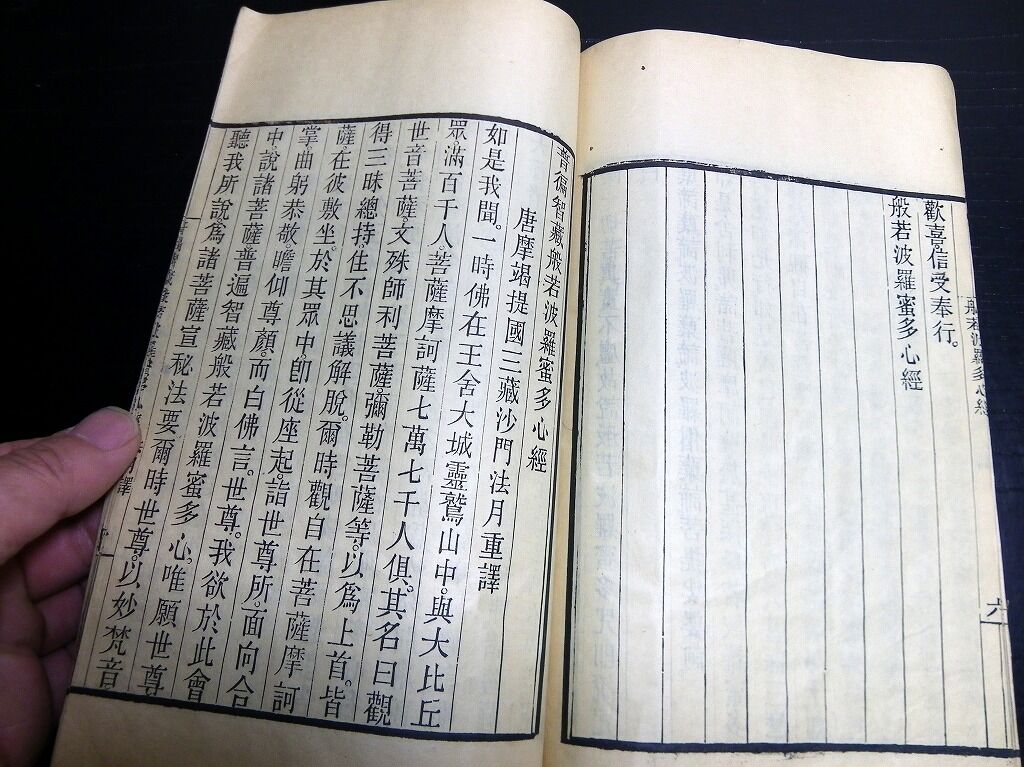 般若波羅蜜多心經
六
歡喜。信受奉行。
般若波羅蜜多心經
普徧智藏般若波羅蜜多心經
唐摩竭提國三藏沙門法月重譯
如是我聞。一時佛在王舍大城靈鷲山中。與大比丘
眾。滿百千人。菩薩摩訶薩七萬七千人俱。其名曰觀
世音菩薩。文殊師利菩薩。彌勒菩薩等。以為上首。皆
得三昧總持。住不思議解脫。爾時觀自在菩薩摩訶
薩。在彼敷坐。於其眾中。即從座起。詣世尊所。面向合
掌。曲躬恭敬。瞻仰尊顏。而白佛言。世尊。我欲於此會
中。說諸菩薩。普遍智藏般若波羅蜜多心。唯願世尊
聽我所說。為諸菩薩宣秘法要。爾時世尊。以妙梵音